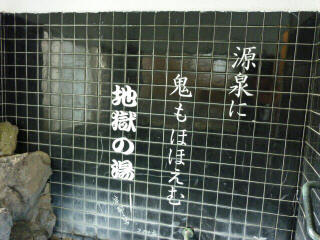 源泉に
鬼もほほえむ
地獄の湯